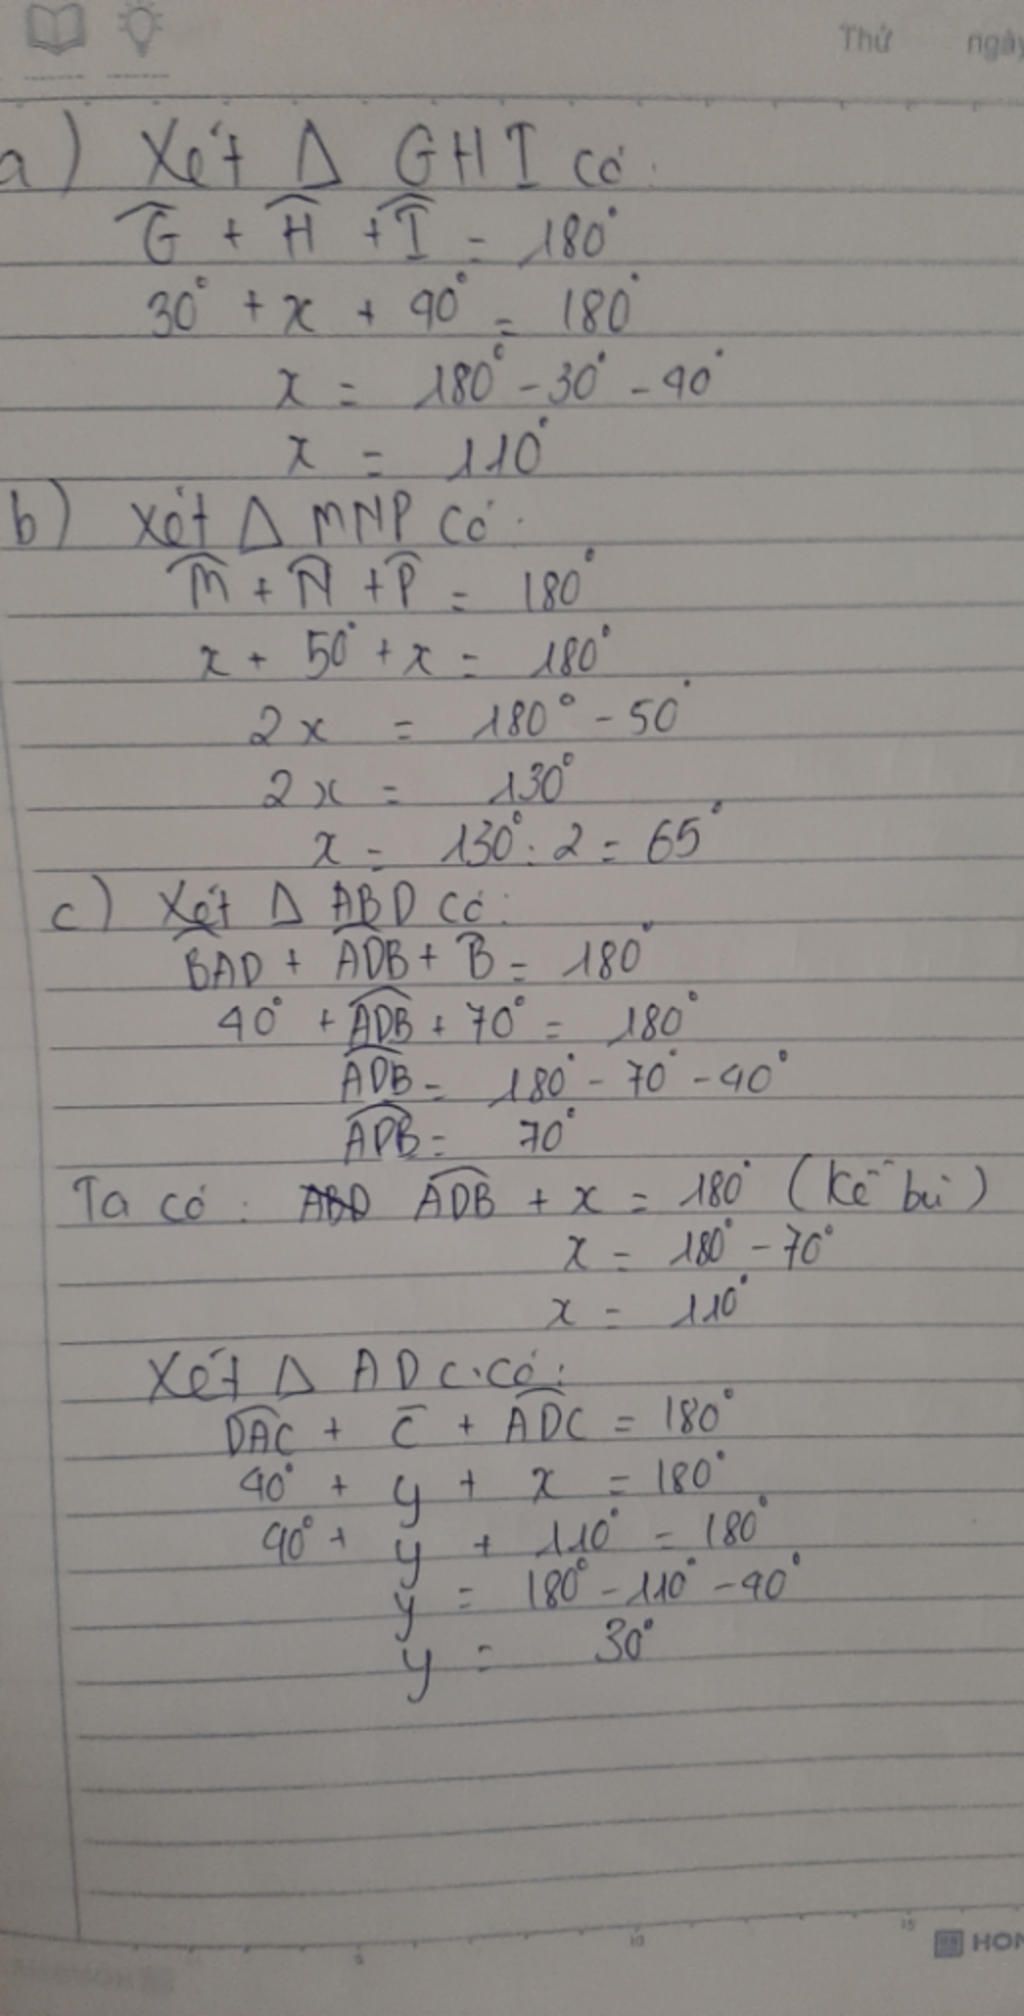 Thứ ngày
a) Xét Δ GHI có.
Ĝ + Ĥ + Î = 180°
30° + x + 40° = 180°
x = 180° - 30° - 40°
x = 110°
b) Xét Δ MNP có:
M̂ + N̂ + P̂ = 180°
x + 50° + x = 180°
2x = 180° - 50°
2x = 130°
x = 130° : 2 = 65°
c) Xét Δ ABD có:
B͡AD + A͡DB + B̂ = 180°
40° + A͡DB + 70° = 180°
A͡DB = 180° - 70° - 40°
A͡DB = 70°
Ta có: A͡DB + x = 180° (kề bù)
x = 180° - 70°
x = 110°
Xét Δ ADC có:
D͡AC + Ĉ + A͡DC = 180°
40° + y + x = 180°
40° + y + 110° = 180°
y = 180° - 110° - 40°
y = 30°
5 10 15
HON